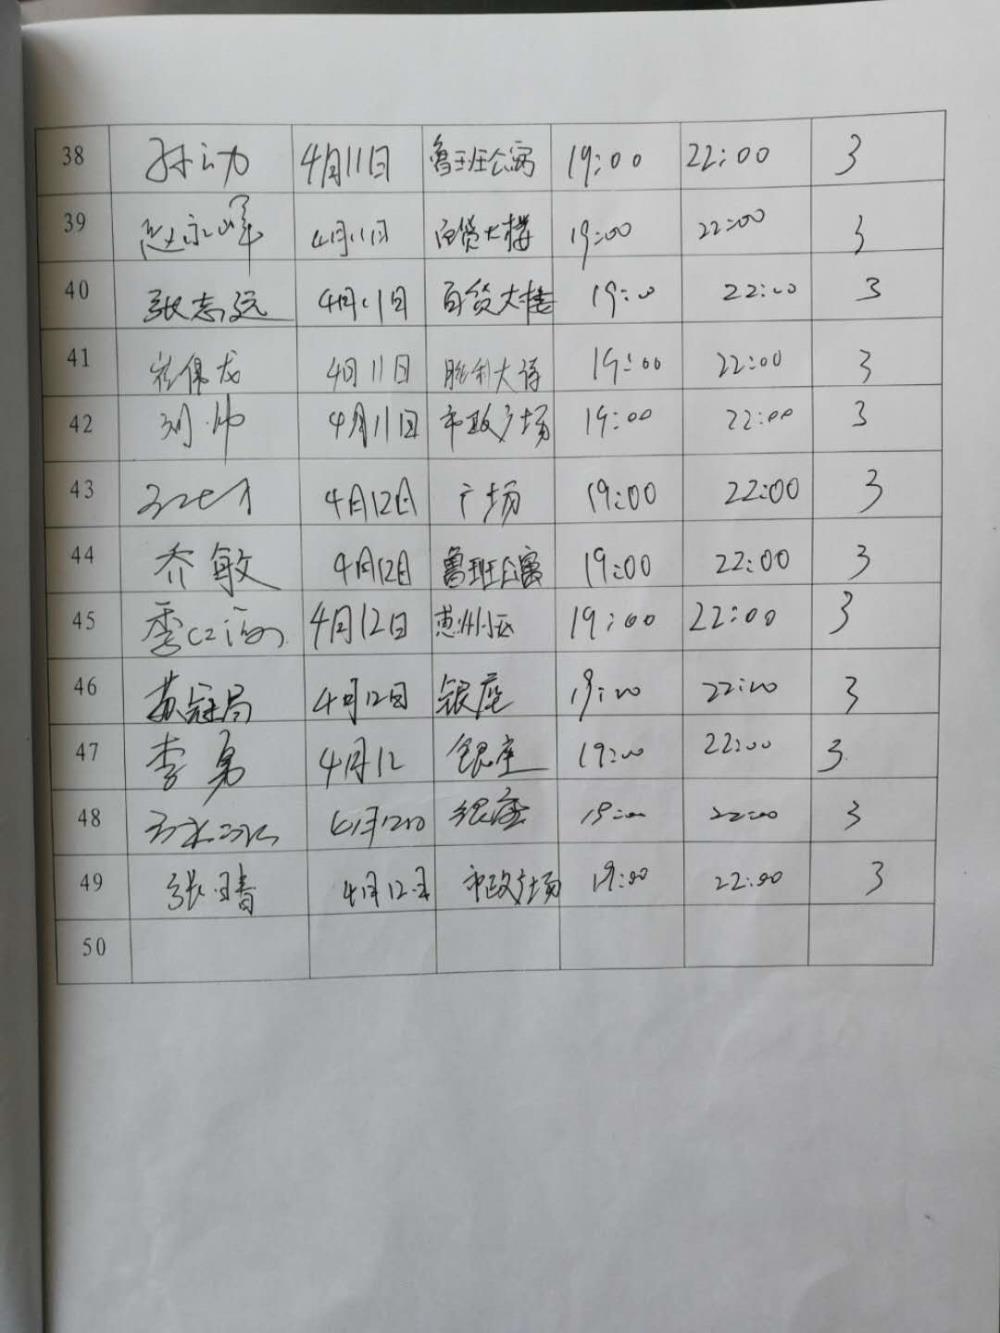 38 孙立功 4月11日 鲁班公寓 19:00 22:00 3
39 赵永峰 4月11日 百货大楼 19:00 22:00 3
40 张志远 4月11日 百货大楼 19:00 22:00 3
41 保龙 4月11日 胜利大 19:00 22:00 3
42 刘帅 4月11日 市政广场 19:00 22:00 3
43 4月12日 广场 19:00 22:00 3
44 乔敏 4月12日 鲁班公寓 19:00 22:00 3
45 李江海 4月12日 惠州小区 19:00 22:00 3
46 苏冠局 4月12日 银座 19:00 22:00 3
47 李勇 4月12 银座 19:00 22:00 3
48 4月12日 银座 19:00 22:00 3
49 张晴 4月12日 市政广场 19:00 22:00 3
50